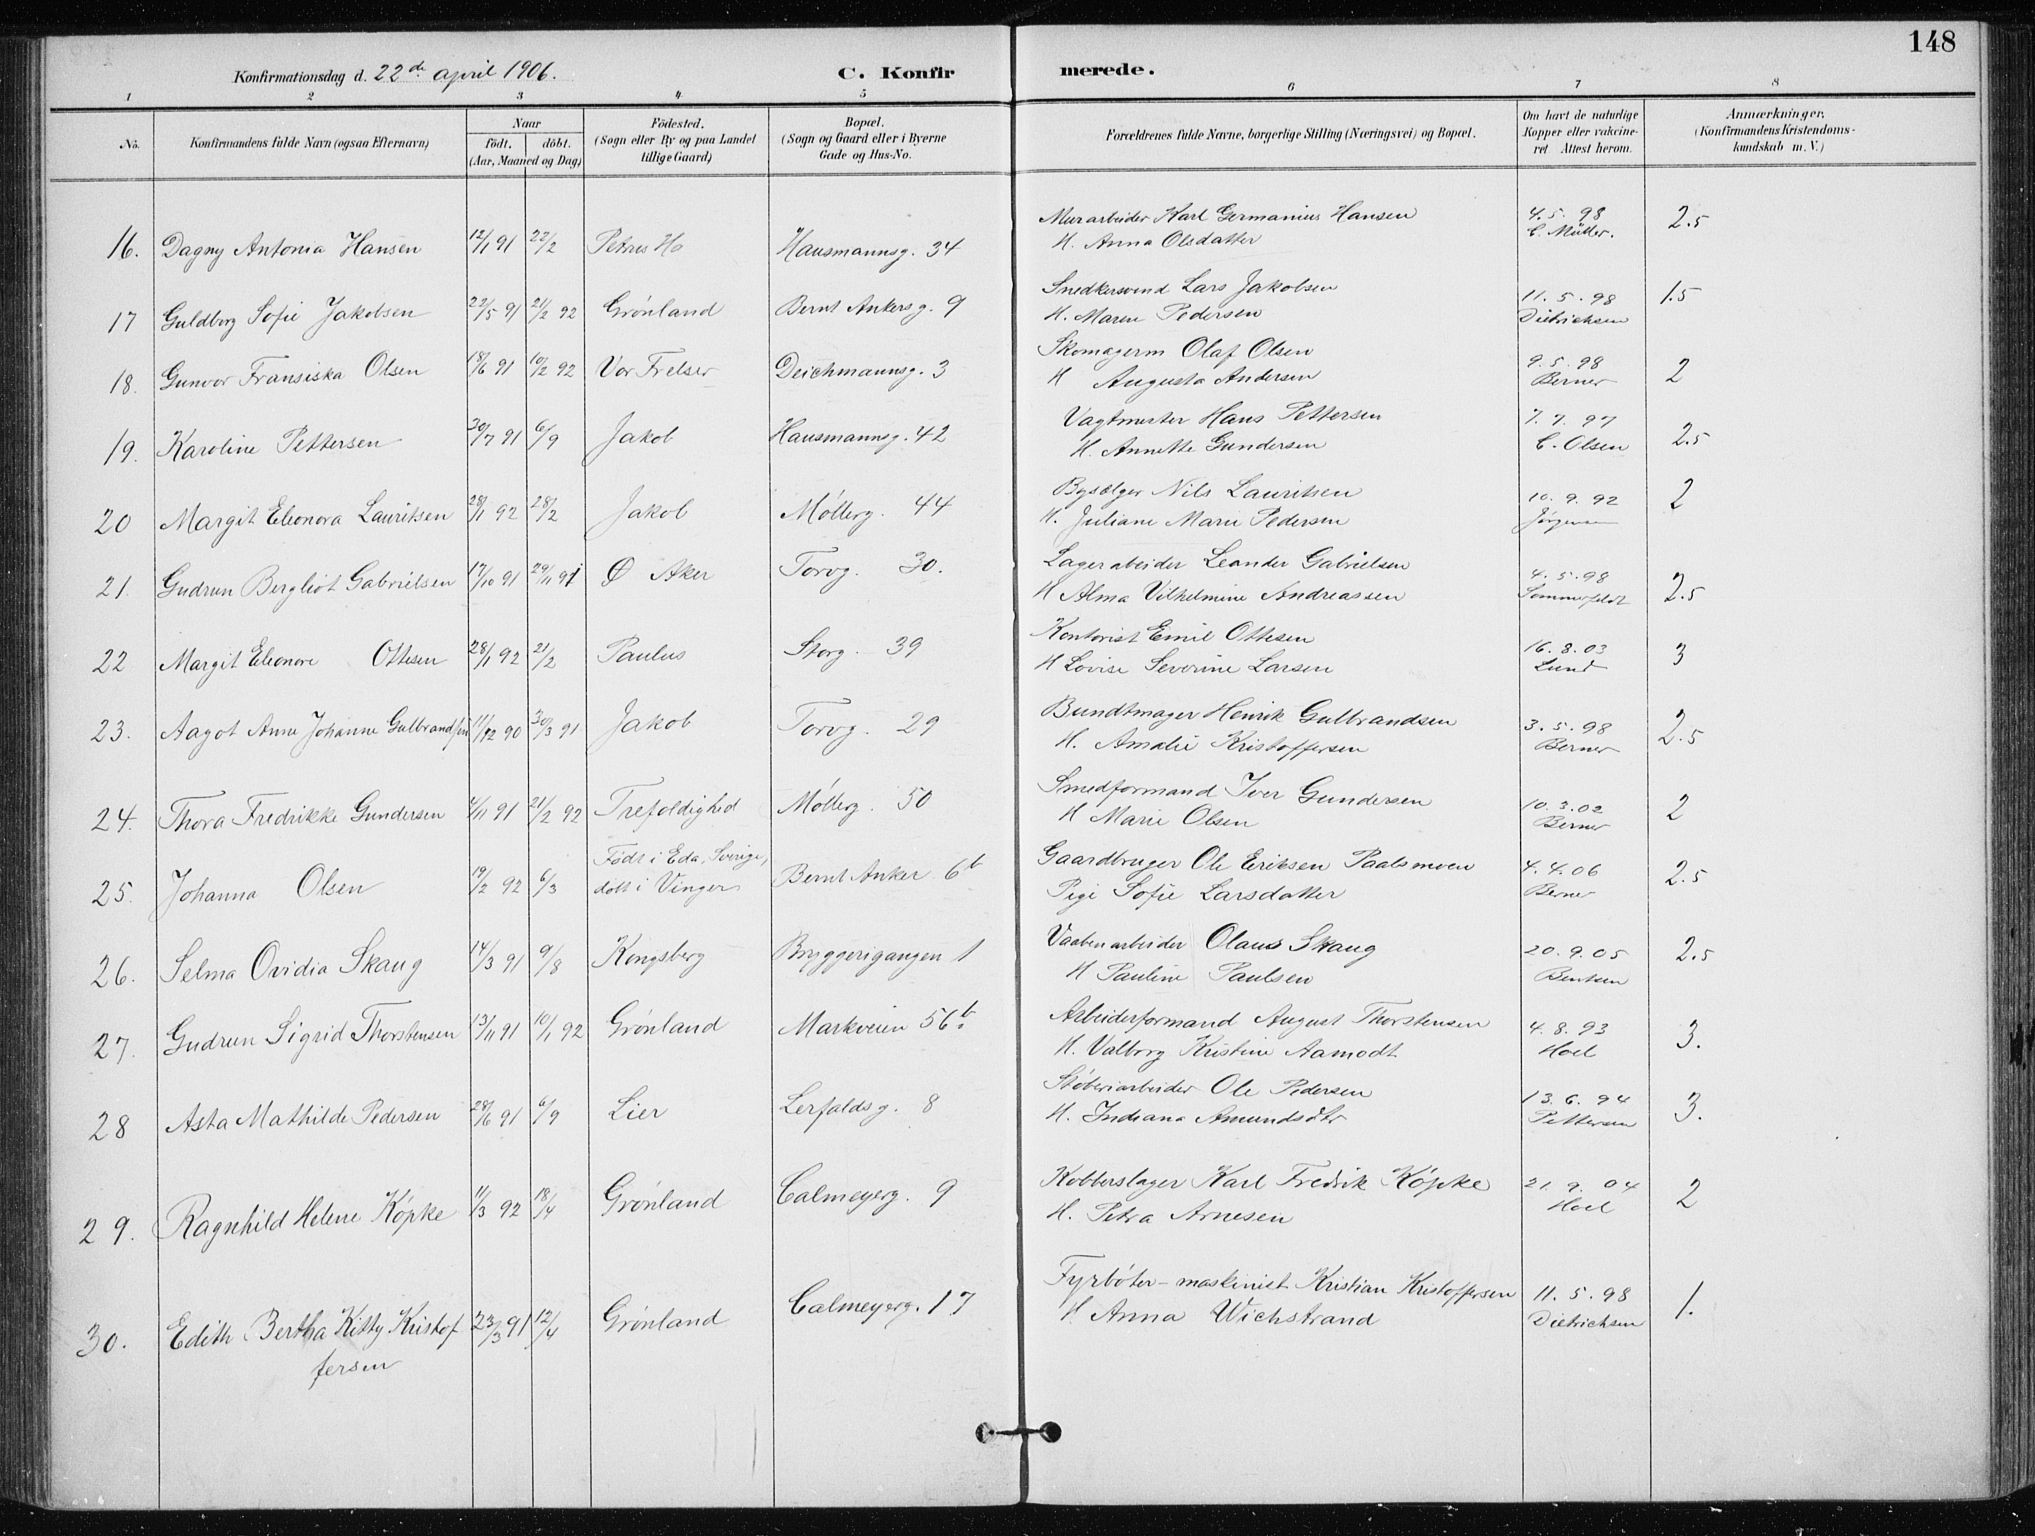 148
Konfirmationsdag d. 22de april 1906. C. Konfirmerede.
1 2 3 4 5 6 7 8
No. Konfirmandens fulde Navn (ogsaa Efternavn) Naar födt. döbt. (Aar, Maaned og Dag) Födested. (Sogn eller By og paa Landet tillige Gaard) Bopæl. (Sogn og Gaard eller i Byerne Gade og Hus-No. Forældrenes fulde Navne, borgerlige Stilling (Næringsvei) og Bopæl. Om havt de naturlige Kopper eller vakcineret. Attest herom. Anmærkninger. (Konfirmandens Kristendomskundskab m. V.)
16. Dagny Antonia Hansen 12/1 91 22/2 Petrus Hausmannsg. 34 Murarbeider Karl Germanius Hansen 4.5.98 2.5
H. Anna Olsdatter C. Müller.
17 Guldborg Sofie Jakobsen 22/5 91 21/2 92 Grønland Bernt Ankersg. 9 Snedkersvend Lars Jakobsen 11.5.98 1.5
H. Maren Pedersen Dietrichsen
18. Gunvor Fransiska Olsen 18/6 91 10/2 92 Vor Frelser Deichmannsg. 3 Skomagerm Olaf Olsen 9.5.98 2
H Augusta Andersen Berner
19. Karoline Pettersen 20/7 91 6/9 Jakob Hausmannsg. 42 Vagtmester Hans Pettersen 7.7.97 2.5
H. Annette Gundersen C. Olsen
20 Margit Eleonora Lauritsen 28/1 92 28/2 Jakob Møllerg. 44 Bysælger Nils Lauritsen 10.9.92 2
H. Juliane Marie Pedersen Jørgensen
21. Gudrun Bergliot Gabrielsen 17/10 91 29/11 91 Ø Aker Torvg. 30. Lagerarbeider Leander Gabrielsen 4.5.98 2.5
H Alma Vilhelmine Andreassen Sommerfeldt
22 Margit Eleonore Ottesen 28/1 92 21/2 Paulus Storg. 39 Kontorist Emil Ottesen 16.8.03 3
H Lovise Severine Larsen Lund
23. Aagot Anna Johanne Gulbrandsen 11/12 90 30/3 91 Jakob Torvg. 29 Bundtmager Henrik Gulbrandsen 3.5.98 2.5
H. Amalie Kristoffersen Berner
24. Thora Fredrikke Gundersen 4/11 91 21/2 92 Trefoldighed Møllerg. 50 Smedformand Iver Gundersen 10.3.02 2
H Marie Olsen Berner
25. Johanna Olsen 19/2 92 6/3 Født i Eda, Sverige, døbt i Vinger Bernt Anker 6b Gaardbruger Ole Eriksen Paalsmoen 4.4.06 2.5
Pige Sofie Larsdatter Berner
26. Selma Ovidia Skaug 14/3 91 9/8 Kongsberg Bryggerigangen 1 Vaabenarbeider Olaus Skaug 20.9.05 2.5
H Pauline Paulsen Bentsen
27. Gudrun Sigrid Thorstensen 13/11 91 10/1 92 Grønland Markveien 56b. Arbeiderformand August Thorstensen 4.8.93 3.
H. Valborg Kristine Aamodt Hoel
28 Asta Mathilde Pedersen 28/6 91 6/9 Lier Lerfaldsg. 8 Støberiarbeider Ole Pedersen 13.6.94 3.
H. Indiana Amundsdtr Pettersen
29. Ragnhild Helene Køpke 11/3 92 18/4 Grønland Calmeyerg. 9 Kobberslager Karl Fredrik Køpke 21.9.04 2
H. Petra Arnesen Hoel
30. Edith Bertha Kitty Kristoffersen 23/3 91 12/4 Grønland Calmeyerg. 17 Fyrbøter-maskinist Kristian Kristoffersen 11.5.98 1.
H Anna Wichstrand Dietrichsen